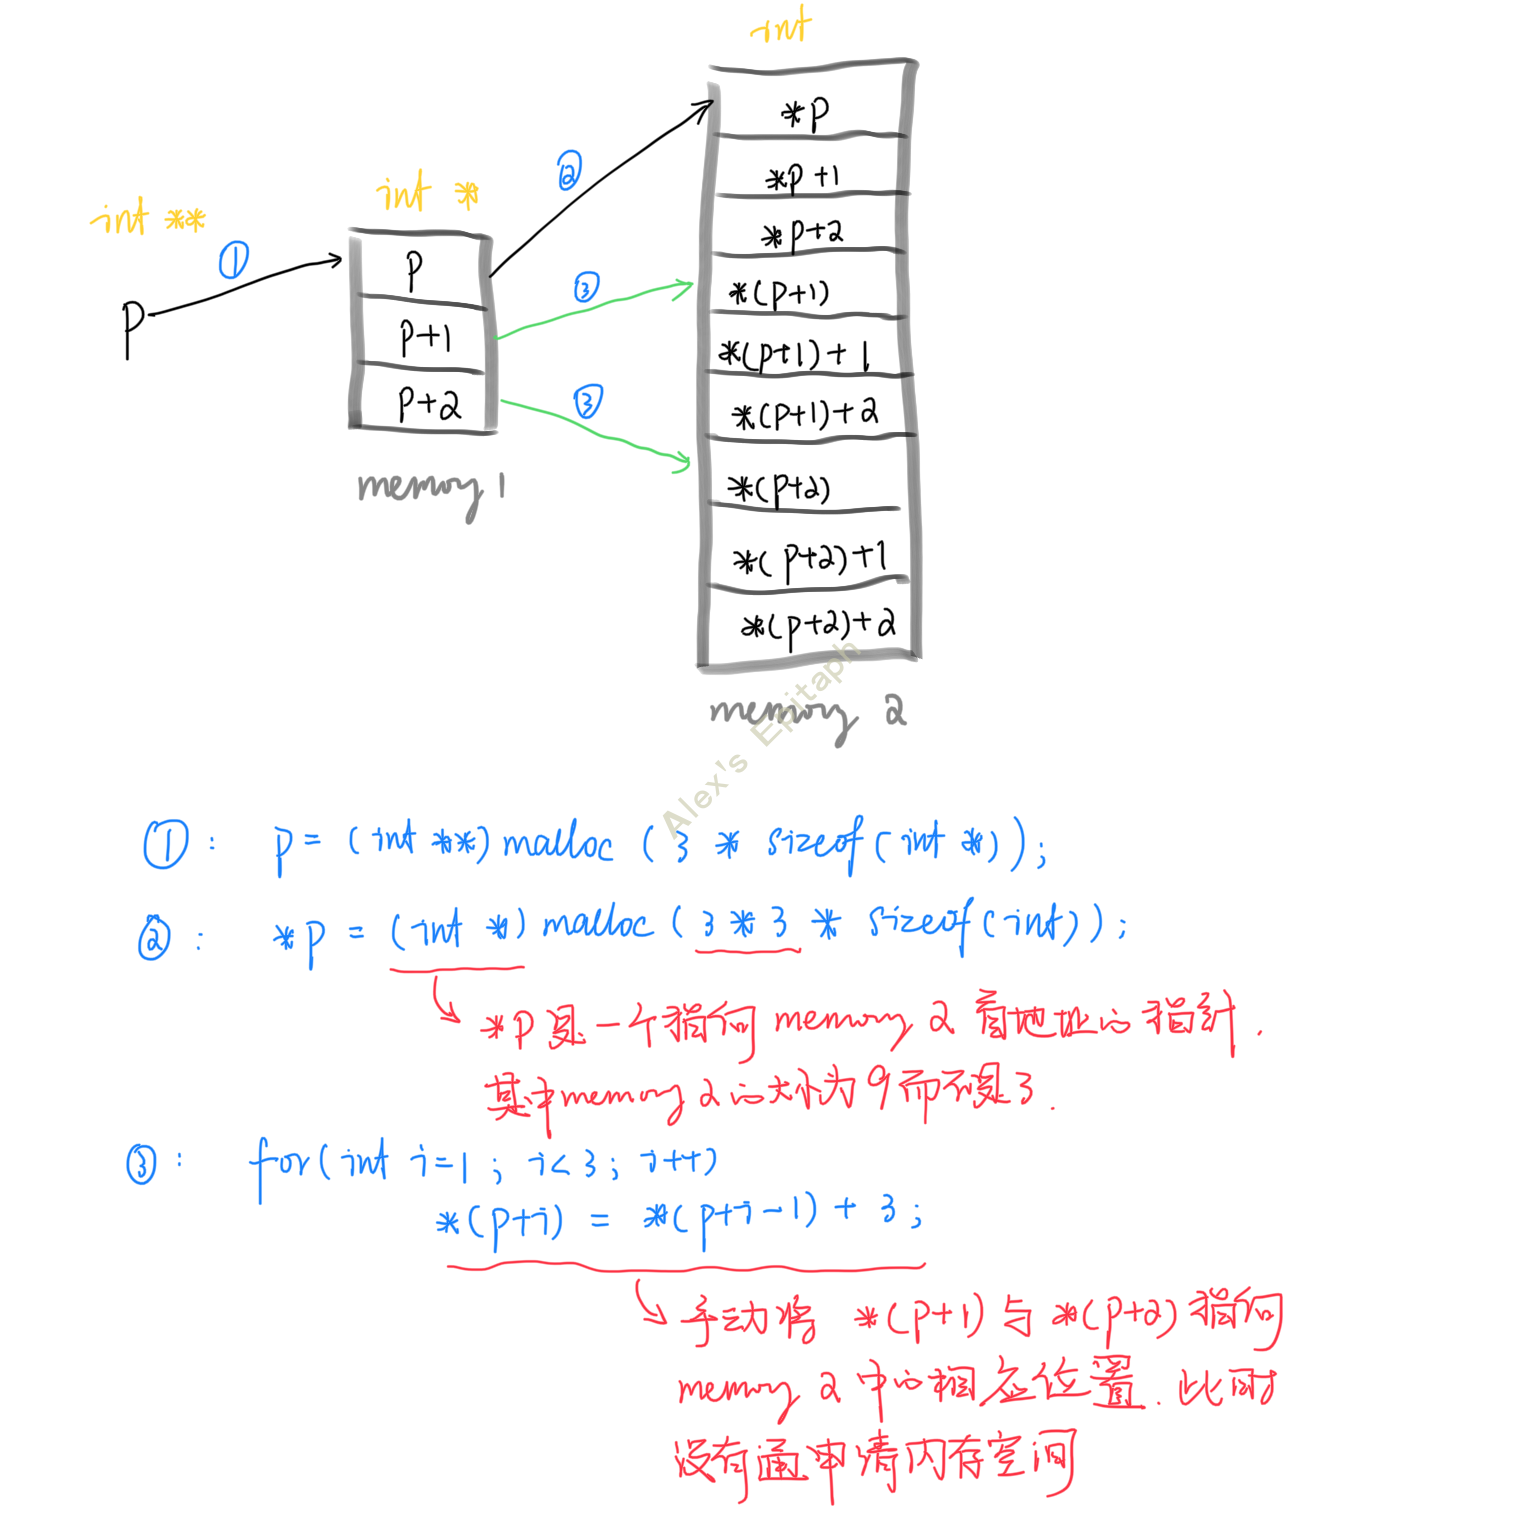 int
*p
*p+1
int *
*p+2
int **
②
①
p
③
*(p+1)
p
p+1
*(p+1)+1
p+2
③
*(p+1)+2
memory 1
*(p+2)
*(p+2)+1
*(p+2)+2
memory 2
Alex's Epitaph
①: p = (int **) malloc (3 * sizeof(int *));
②: *p = (int *) malloc (3 * 3 * sizeof(int));
*p是一个指向 memory 2 首地址的指针.
其中memory 2的大小为9而不是3.
③: for(int i=1; i<3; i++)
*(p+i) = *(p+i-1) + 3;
手动将 *(p+1) 与 *(p+2) 指向
memory 2 中的相应位置. 此时
没有 申请内存空间